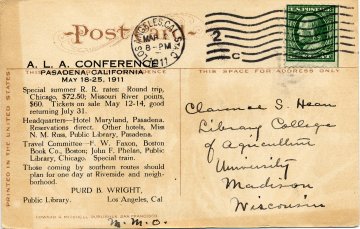 Post Card
LOS ANGELES, CAL. STA. C
MAR
8-PM
1911
2
C
A. L. A. CONFERENCE
PASADENA, CALIFORNIA
MAY 18-25, 1911
THIS SPACE FOR ADDRESS ONLY
Special summer R. R. rates: Round trip,
Chicago, $72.50; Missouri River points,
$60. Tickets on sale May 12-14, good
returning July 31.
Headquarters—Hotel Maryland, Pasadena.
Reservations direct. Other hotels, Miss
N. M. Russ, Public Library, Pasadena.
Travel Committee—F. W. Faxon, Boston
Book Co., Boston; John F. Phelan, Public
Library, Chicago. Special train.
Those coming by southern routes should
plan for one day at Riverside and neigh-
borhood.
PURD B. WRIGHT,
Public Library. Los Angeles, Cal.
EDWARD H. MITCHELL, PUBLISHER, SAN FRANCISCO
PRINTED IN THE UNITED STATES
Clarence S. Hean
Library College
of Agriculture
University
Madison
Wisconsin